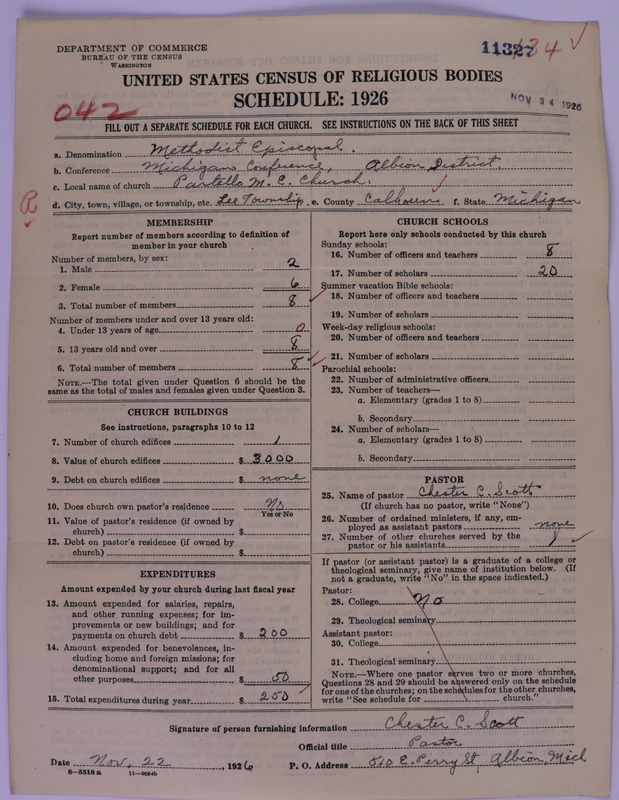 DEPARTMENT OF COMMERCE
BUREAU OF THE CENSUS
WASHINGTON
11327
134 ✓
UNITED STATES CENSUS OF RELIGIOUS BODIES
SCHEDULE: 1926
NOV 24 1926
042
FILL OUT A SEPARATE SCHEDULE FOR EACH CHURCH. SEE INSTRUCTIONS ON THE BACK OF THIS SHEET
a. Denomination Methodist Episcopal.
b. Conference Michigan Conference, Albion District.
c. Local name of church Partello M. E. Church.
d. City, town, village, or township, etc. Lee Township, e. County Calhoun f. State Michigan
R
MEMBERSHIP
Report number of members according to definition of
member in your church
Number of members, by sex:
1. Male 2
2. Female 6
3. Total number of members 8
Number of members under and over 13 years old:
4. Under 13 years of age 0
5. 13 years old and over 8
6. Total number of members 8
NOTE.—The total given under Question 6 should be the
same as the total of males and females given under Question 3.
CHURCH BUILDINGS
See instructions, paragraphs 10 to 12
7. Number of church edifices 1
8. Value of church edifices $ 3000
9. Debt on church edifices $ none
10. Does church own pastor's residence No
Yes or No
11. Value of pastor's residence (if owned by
church) $
12. Debt on pastor's residence (if owned by
church) $
EXPENDITURES
Amount expended by your church during last fiscal year
13. Amount expended for salaries, repairs,
and other running expenses; for im-
provements or new buildings; and for
payments on church debt $ 200
14. Amount expended for benevolences, in-
cluding home and foreign missions; for
denominational support; and for all
other purposes $ 50
15. Total expenditures during year $ 250
CHURCH SCHOOLS
Report here only schools conducted by this church
Sunday schools:
16. Number of officers and teachers 8
17. Number of scholars 20
Summer vacation Bible schools:
18. Number of officers and teachers
19. Number of scholars
Week-day religious schools:
20. Number of officers and teachers
21. Number of scholars
Parochial schools:
22. Number of administrative officers
23. Number of teachers—
a. Elementary (grades 1 to 8)
b. Secondary
24. Number of scholars—
a. Elementary (grades 1 to 8)
b. Secondary
PASTOR
25. Name of pastor Chester C. Scott
(If church has no pastor, write "None")
26. Number of ordained ministers, if any, em-
ployed as assistant pastors none
27. Number of other churches served by the
pastor or his assistants 1
If pastor (or assistant pastor) is a graduate of a college or
theological seminary, give name of institution below. (If
not a graduate, write "No" in the space indicated.)
Pastor:
28. College No
29. Theological seminary
Assistant pastor:
30. College
31. Theological seminary
NOTE.—Where one pastor serves two or more churches,
Questions 28 and 29 should be answered only on the schedule
for one of the churches; on the schedules for the other churches,
write "See schedule for church."
Signature of person furnishing information Chester C. Scott
Official title Pastor
Date Nov. 22, 1926 P. O. Address 510 E. Perry St, Albion, Mich
8—5518 a 11—9664b